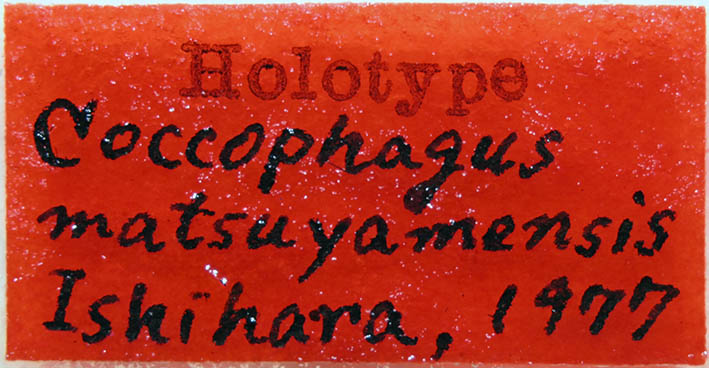 Holotype
Coccophagus
matsuyamensis
Ishihara, 1977